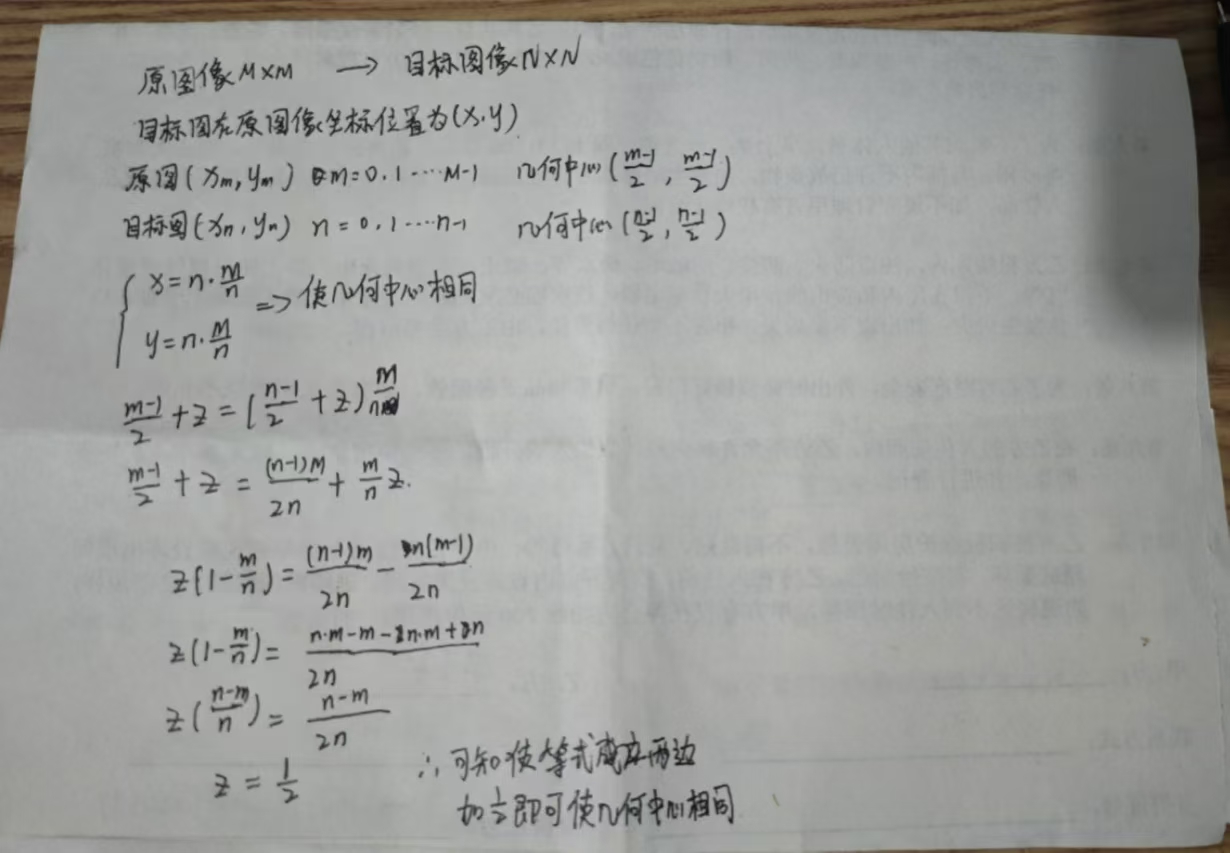 原图像M×M → 目标图像N×N
目标图在原图像坐标位置为(x,y)
原图(xm,ym) m=0.1····M-1 几何中心(m-1/2, m-1/2)
目标图(xn,yn) n=0.1····n-1 几何中心(n-1/2, n-1/2)
{ x=n·m/n
y=n·m/n => 使几何中心相同
m-1/2+z=(n-1/2+z)m/n
m-1/2+z=(n-1)M/2n+m/n z.
z(1-m/n)=(n-1)m/2n-n(m-1)/2n
z(1-m/n)=n·m-m-n·m+n/2n
z(n-m/n)=n-m/2n
z=1/2
∴可知使等式成立两边
加1/2即可使几何中心相同